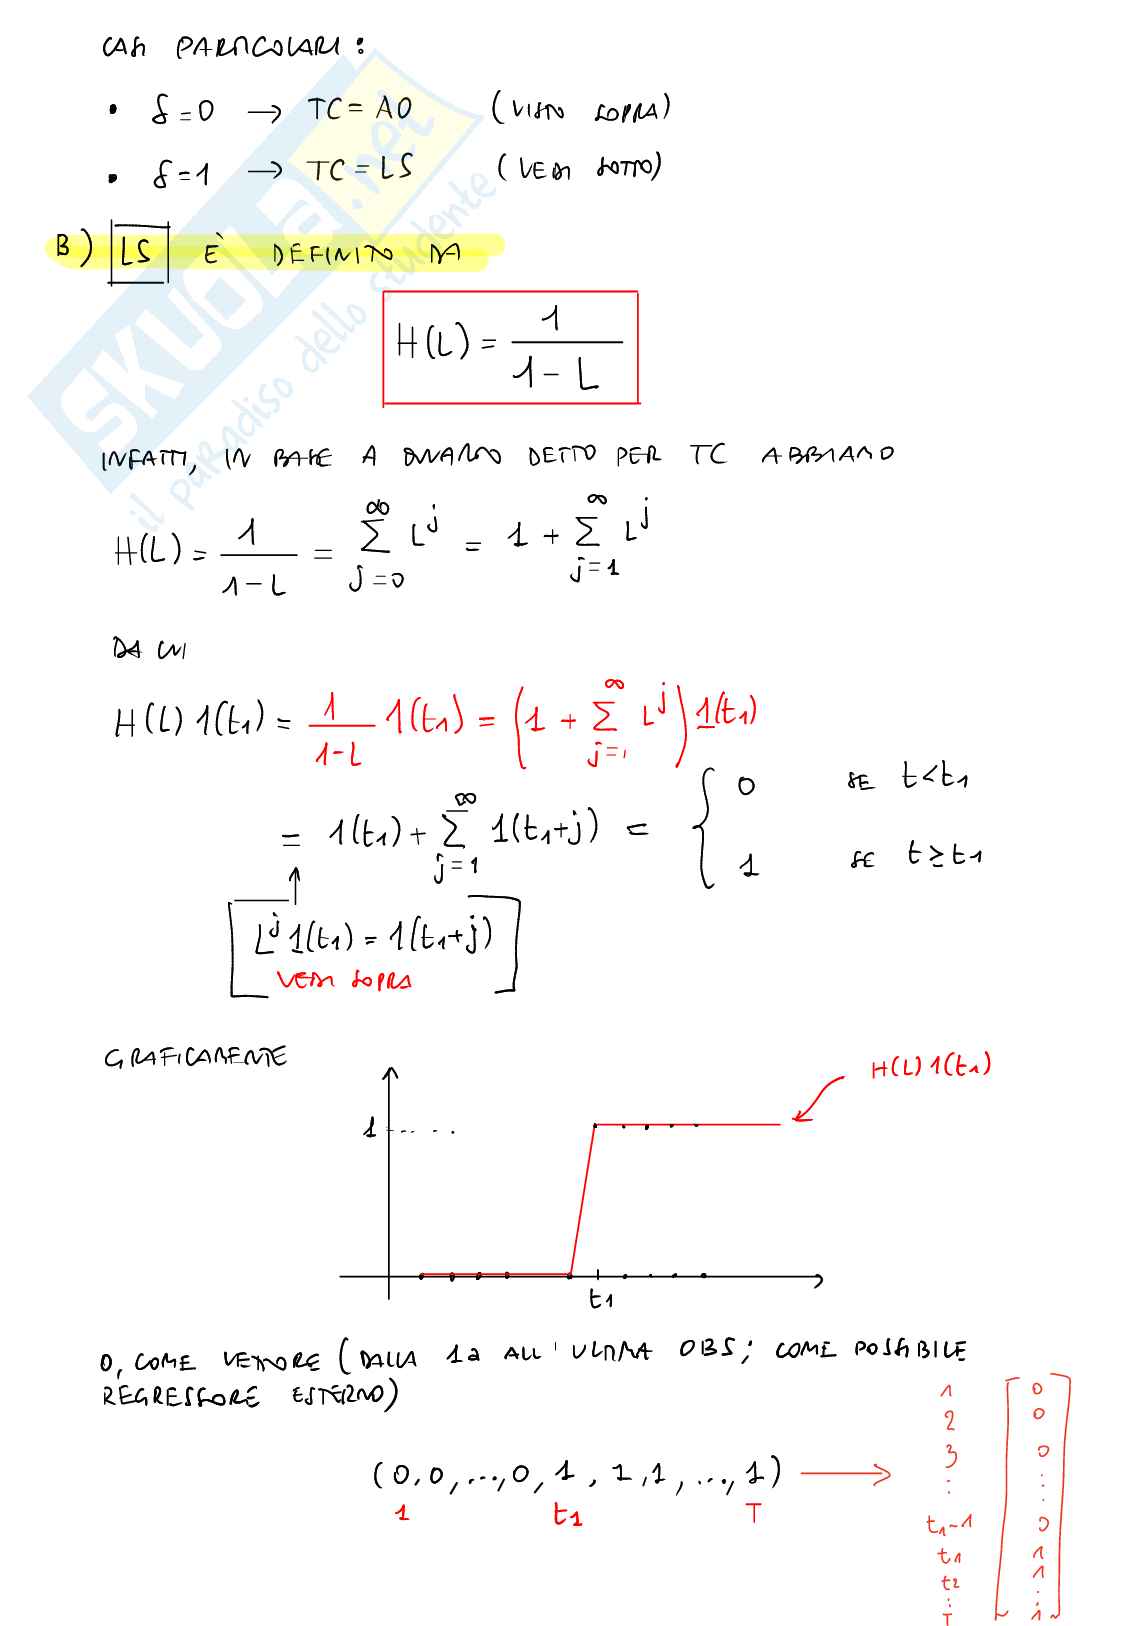 CASI PARTICOLARI:
• δ=0 → TC=AO (VISTO SOPRA)
• δ=1 → TC=LS (VEDI SOTTO)
B) LS È DEFINITO DA
H(L) = 1/(1-L)
INFATTI, IN BASE A QUANTO DETTO PER TC ABBIAMO
H(L) = 1/(1-L) = ∑_{j=0}^{∞} L^j = 1 + ∑_{j=1}^{∞} L^j
DA CUI
H(L) 1(t1) = 1/(1-L) 1(t1) = (1 + ∑_{j=1}^{∞} L^j) 1(t1)
= 1(t1) + ∑_{j=1}^{∞} 1(t1+j) = { 0 SE t<t1
1 SE t≥t1
[L^j 1(t1) = 1(t1+j)]
VEDI SOPRA
GRAFICAMENTE
H(L) 1(t1)
1
t1
O, COME VETTORE (DALLA 1a ALL'ULTIMA OBS; COME POSSIBILE
REGRESSORE ESTERNO)
(0,0,...,0,1,1,1,...,1) →
1 t1 T
1 0
2 0
3 0
⋮ ⋮
t1-1 0
t1 1
t2 1
⋮ ⋮
T 1
SKUOLA.net
il paradiso dello studente